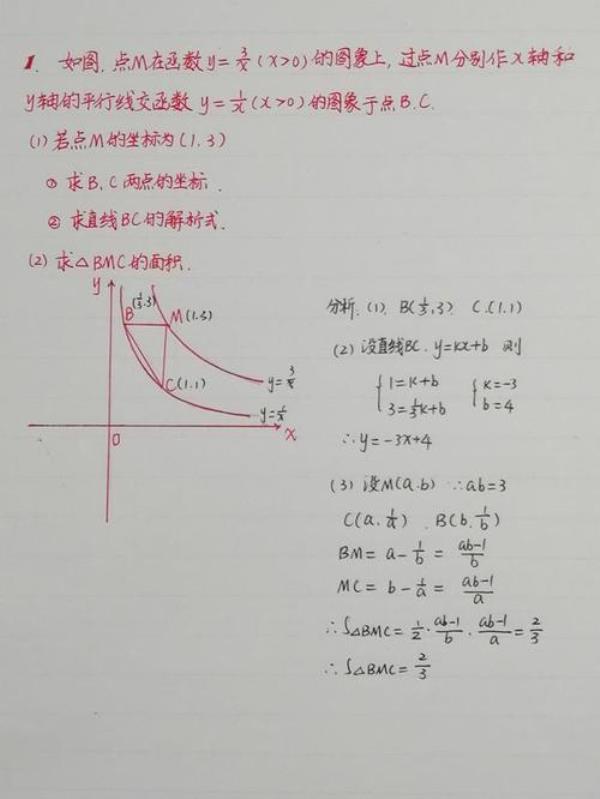 1. 如图,点M在函数y=3/x(x>0)的图象上,过点M分别作x轴和
y轴的平行线交函数y=1/x(x>0)的图象于点B.C.
(1)若点M的坐标为(1,3)
①求B.C两点的坐标.
②求直线BC的解析式.
(2)求△BMC的面积.
y
B
(1/3.3)
M(1.3)
C(1.1)
y=3/x
y=1/x
x
O
分析.(1). B(1/3,3). C.(1.1)
(2)设直线BC.y=kx+b 则
{1=k+b {k=-3
3=1/3k+b b=4
∴y=-3x+4
(3)设M(a.b) ∴ab=3
C(a.1/a) .B(b,1/b)
BM=a-1/b=(ab-1)/b
MC=b-1/a=(ab-1)/a
∴S△BMC=1/2·(ab-1)/b·(ab-1)/a=2/3
∴S△BMC=2/3